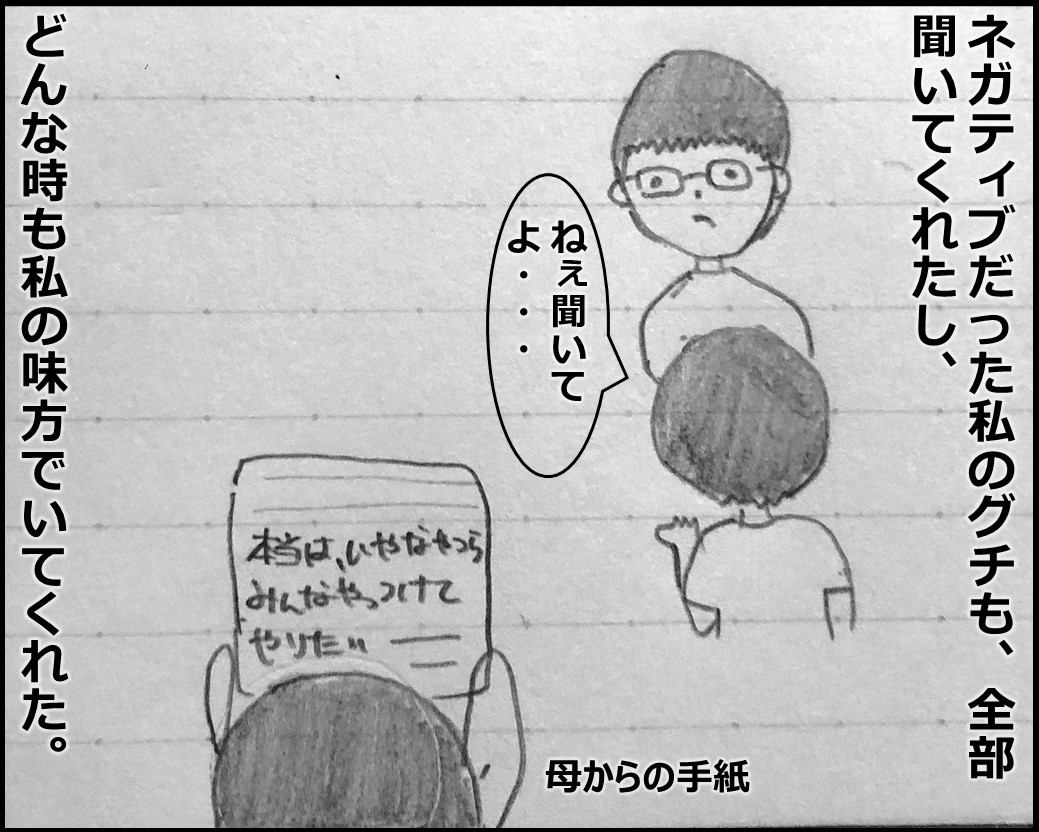 ネガティブだった私のグチも、全部
聞いてくれたし、
ねぇ聞いて
よ・・・・
本当は、いやなやつら
みんなやっつけて
やりたい
母からの手紙
どんな時も私の味方でいてくれた。